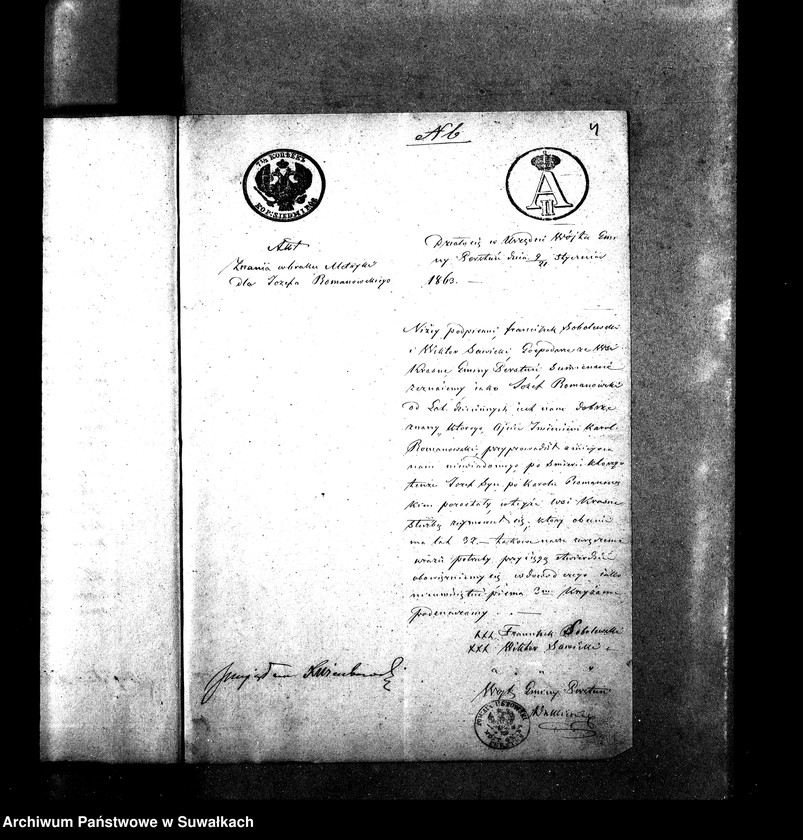 Nb
4
7½ КОПѢЕКЪ
KOP: SIEDM I PÓŁ
A II
Akt
Znania w braku Metryki
dla Józefa Romanowskiego
Działo się w Urzędzie Wójta Gmi
ny Berżniki dnia 9/21 Stycznia
1863. —
Niżéj podpisani, Franciszek Sobolewski
i Wiktor Sawicki Gospodarze ze Wsi
Krasne Gminy Sumiennie
zeznajemy iako Józef Romanowski
od Lat dziecinnych jest nam dobrze
znany, którego Ojciec Imieniem Karol
Romanowski, przyprowadził z miejsca
nam niewiadomego, po śmierci którego
tenże Józef Syn po Karolu Romanows
kim pozostały w tejże wsi Krasne
służbą zajmował się, który obecnie
ma lat 32. — takowe nasze zeznanie
w razie potrzeby przysięgą stwierdzić
obowiązujemy się w dowód czego iako
nieumiejętni pisma 3ma Krzyżami
podznaczamy. —
XXX Franciszek Sobolewski
XXX Wiktor Sawicki
Wójt Gminy
Archiwum Państwowe w Suwałkach